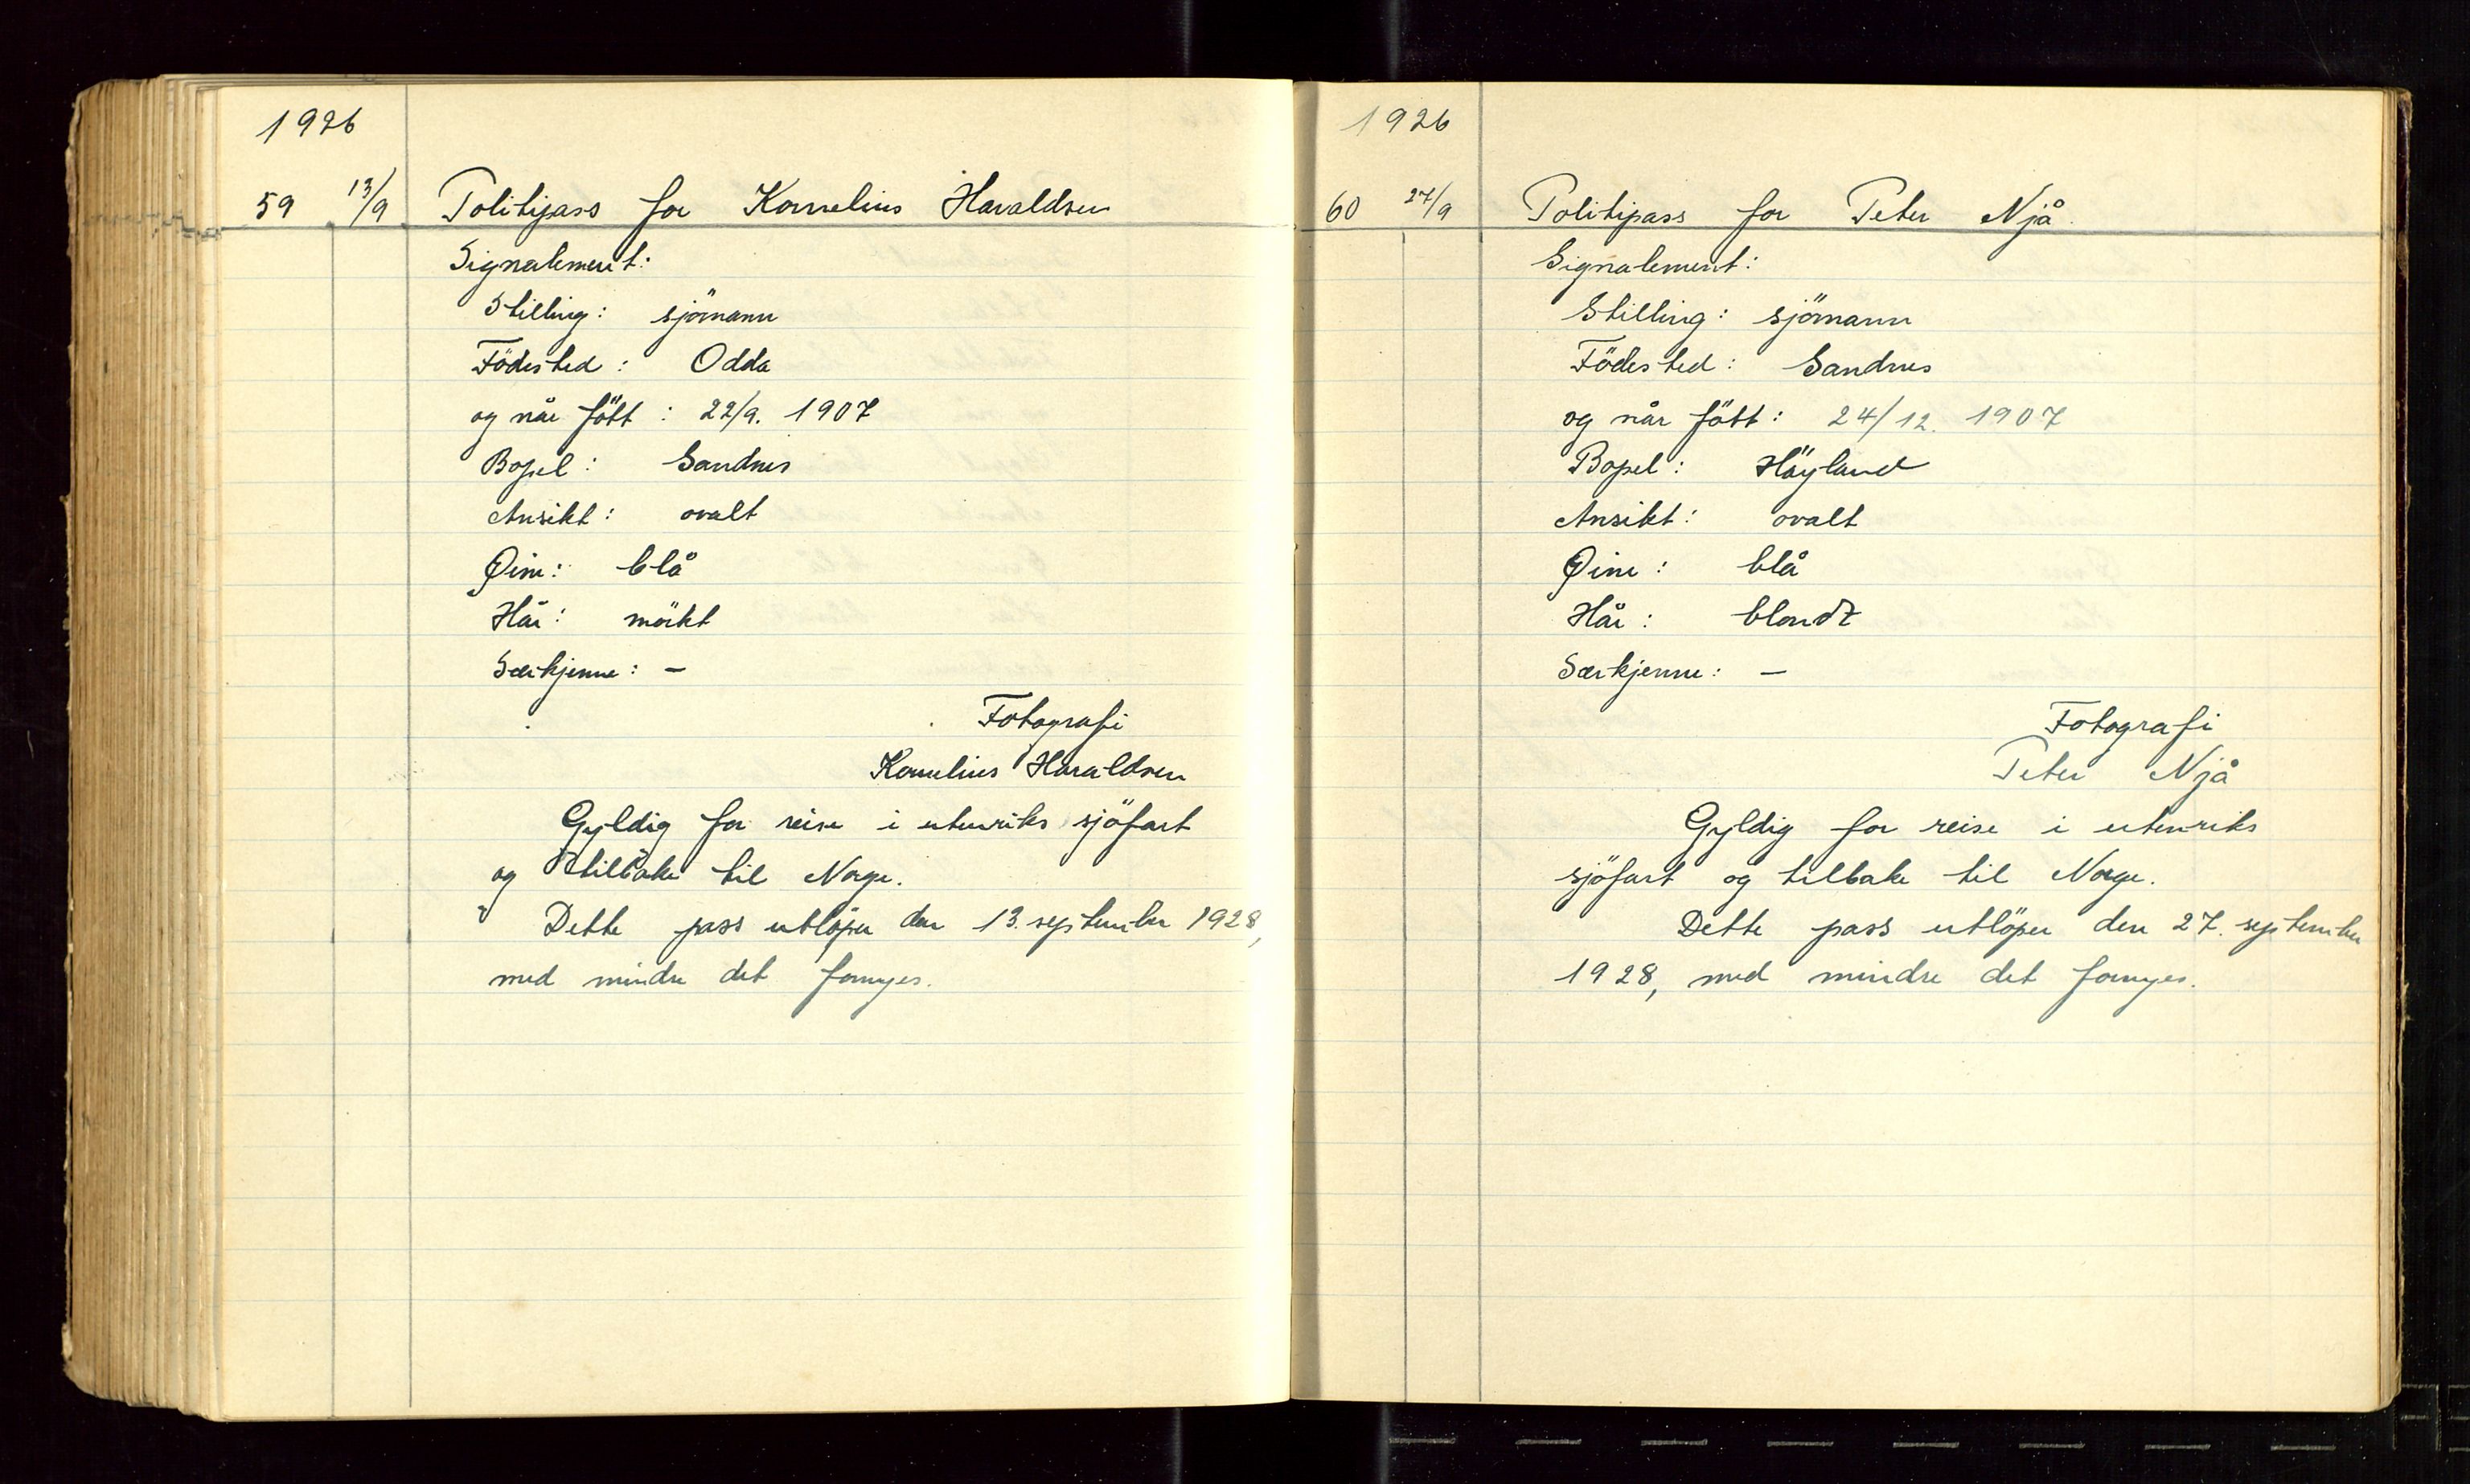 1926
59 13/9 Politipass for Kornelius Haraldsen
Signalement:
Stilling: sjömann
Födested: Odda
og når fött: 22/9. 1907
Bopel: Sandnes
Ansikt: ovalt
Øine: blå
Hår: mörkt
Særkjenne: –
Fotografi
Kornelius Haraldsen
Gyldig for reise i utenriks sjöfart
og tilbake til Norge.
Dette pass utlöper den 13. september 1928,
med mindre det fornyes.
1926
60 27/9 Politipass for Peter Njå.
Signalement:
Stilling: sjömann
Födested: Sandnes
og når fött: 24/12. 1907
Bopel: Höyland
Ansikt: ovalt
Øine: blå
Hår: blondt
Særkjenne: –
Fotografi
Peter Njå
Gyldig for reise i utenriks
sjöfart og tilbake til Norge.
Dette pass utlöper den 27. september
1928, med mindre det fornyes.